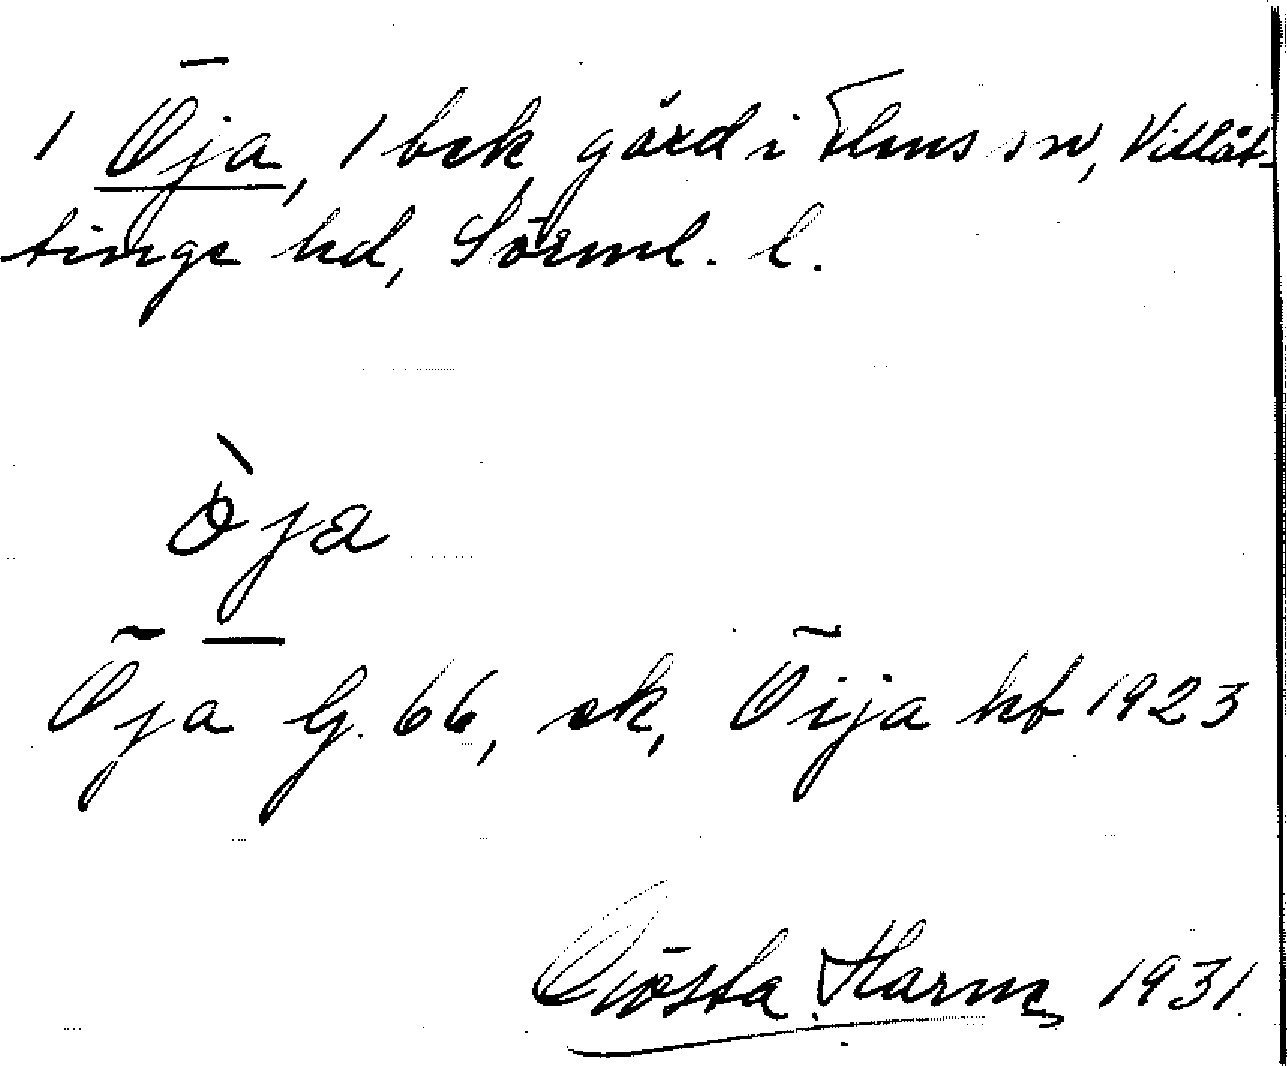 1 Öja, 1 bek gård i Flens sn, Villåt-
tinge hd, Sörml. l.
òja
Öja G. 66, ek, Öija kb 1923
Gösta Harm 1931